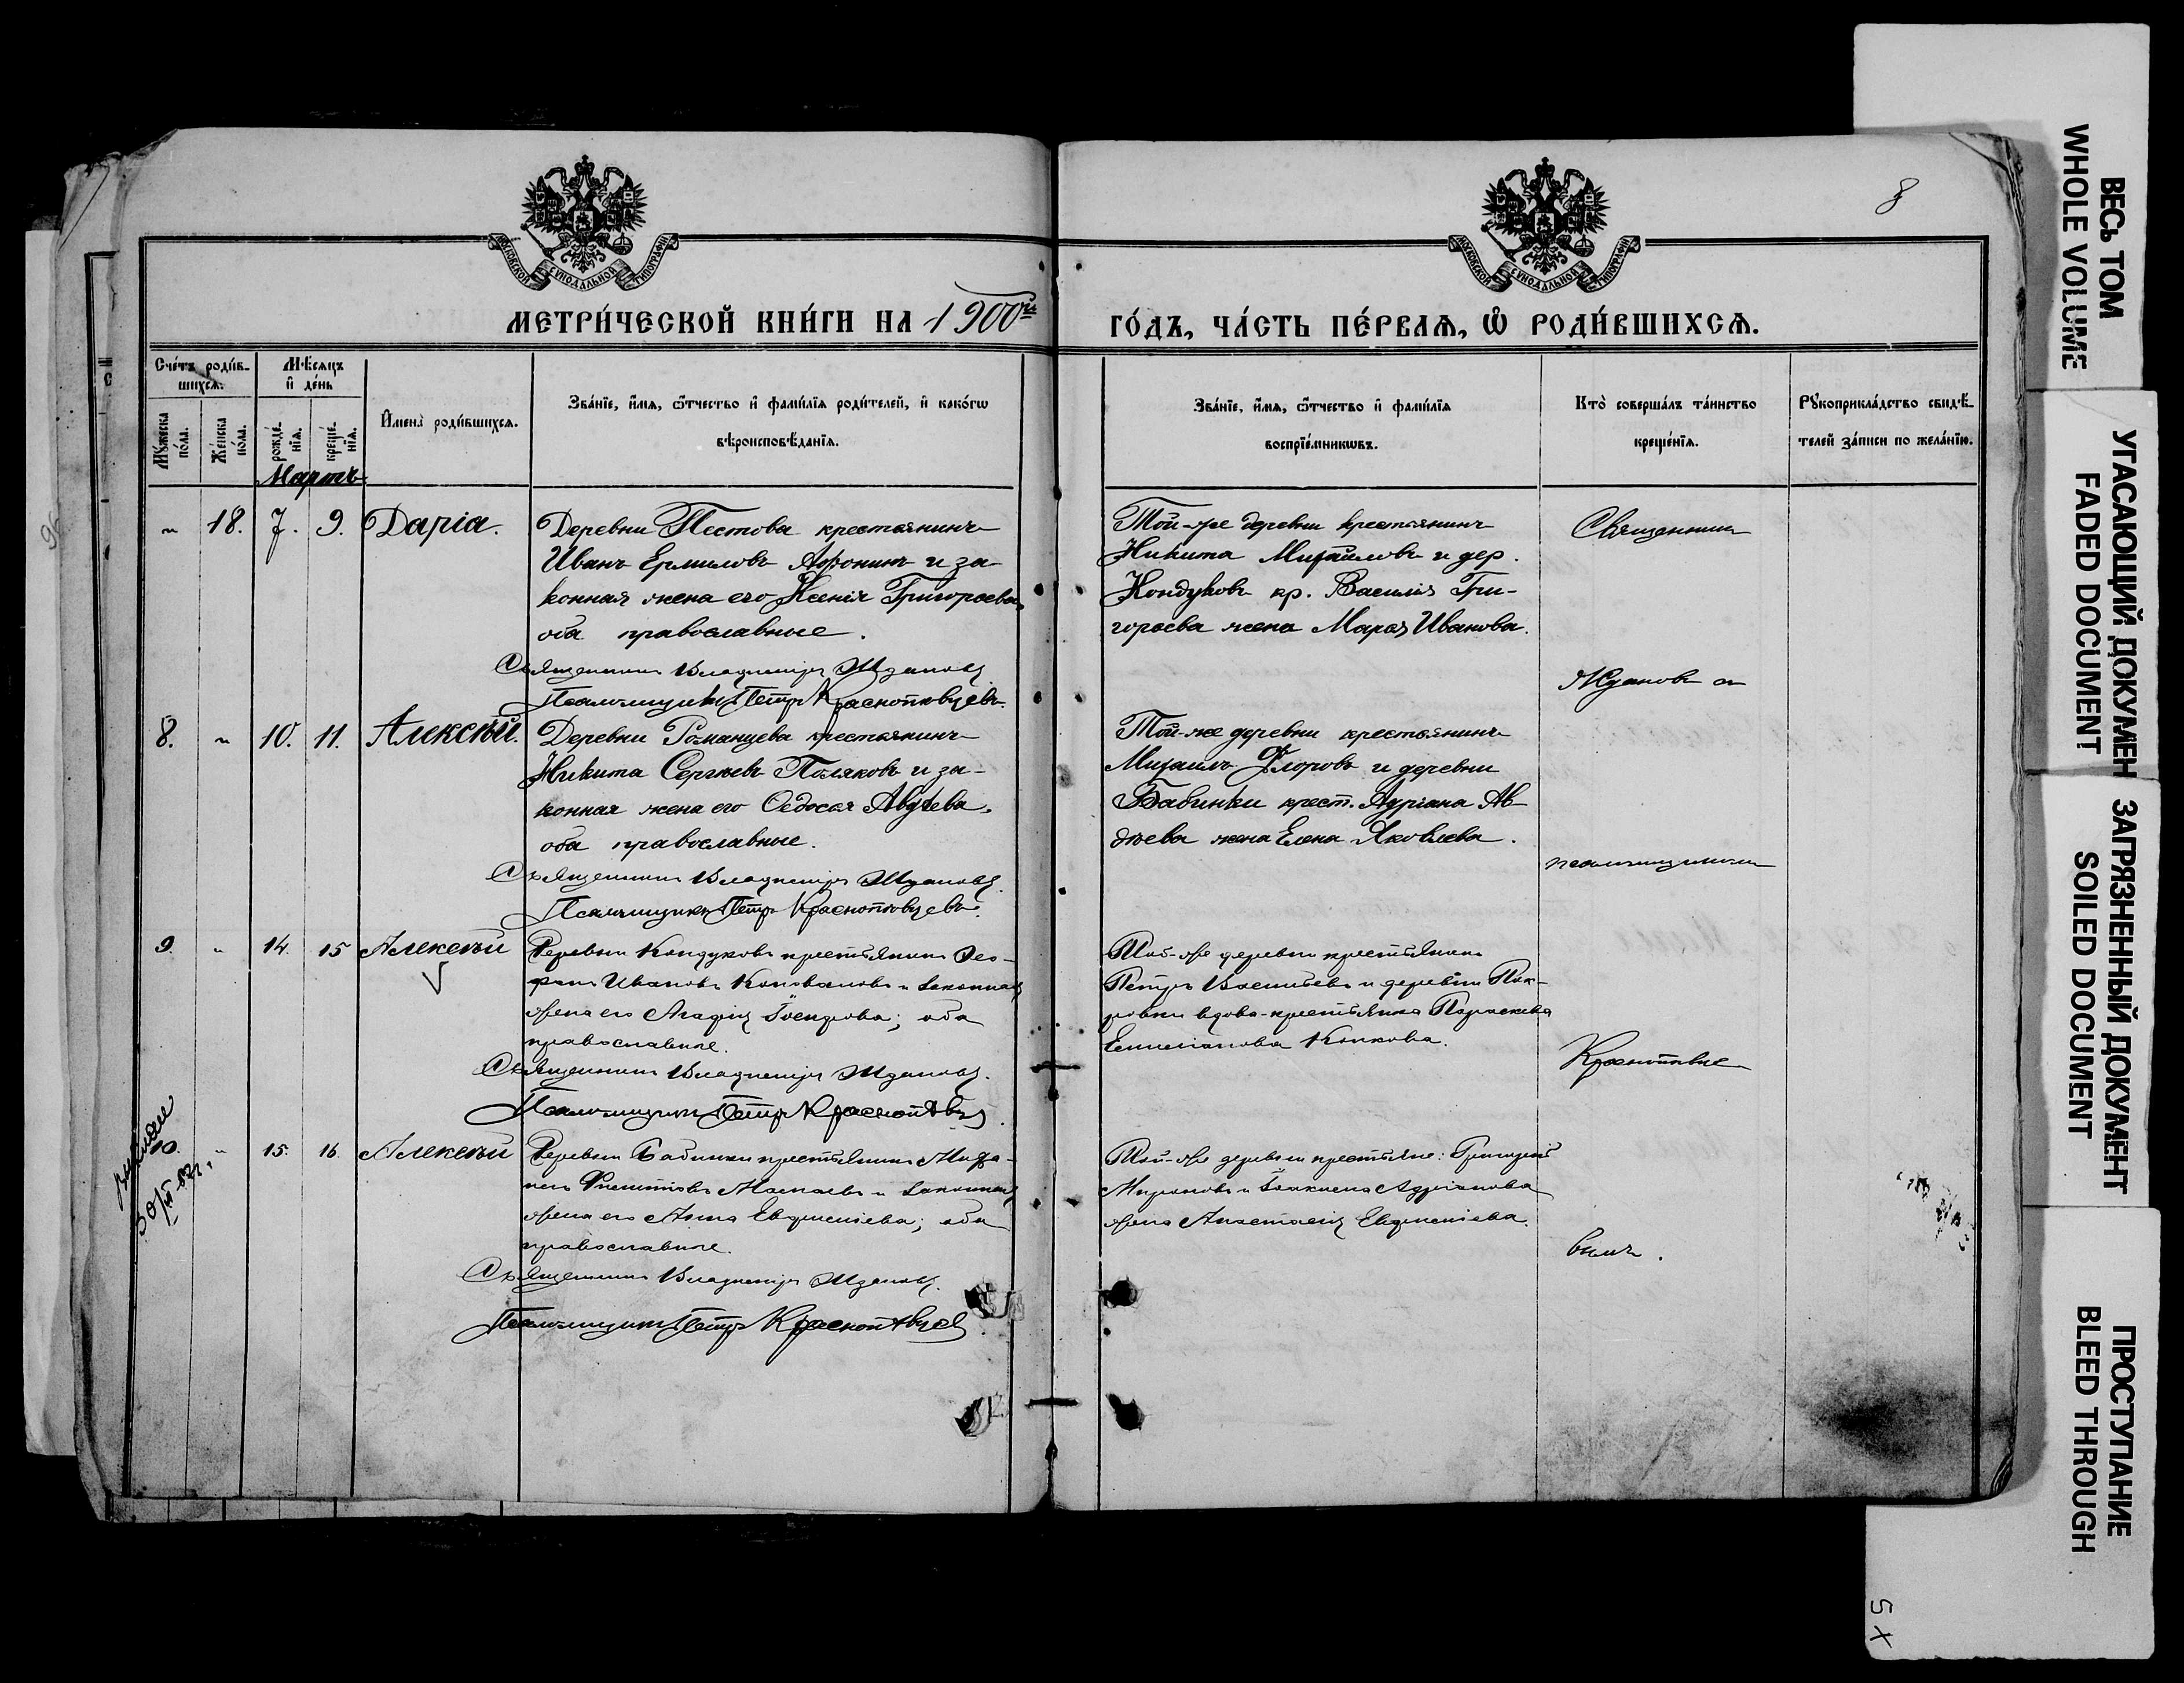 8
МОСКОВСКОЙ СѴНОДАЛЬНОЙ ТИПОГРАФІИ
МОСКОВСКОЙ СѴНОДАЛЬНОЙ ТИПОГРАФІИ
МЕТРИ́ЧЕСКОЙ КНИ́ГИ НА 1900й
ГО́ДЪ, ЧА́СТЬ ПЕ́РВАѦ, Ѡ҆ РОДИ́ВШИХСѦ.
Сче́тъ роди́в-
шихсѧ.
Мѣ́сѧцъ
и҆ де́нь
Мꙋ́жеска по́ла.
Же́нска по́ла.
рожде́нїѧ.
креще́нїѧ.
И҆мена̀ роди́вшихсѧ.
Зва́нїе, и҆́мѧ, ѻ҆́тчество и҆ фами́лїѧ роди́телей, и҆ како́гѡ
вѣроисповѣ́данїѧ.
Зва́нїе, и҆́мѧ, ѻ҆́тчество и҆ фами́лїѧ
воспрїе́мникѡвъ.
Кто̀ соверша́лъ та́инство
креще́нїѧ.
Рꙋкоприкла́дство свидѣ́-
телей за́писи по жела́нїю.
Мартъ
" 18. 7. 9. Дарія.
Деревни Пестова крестьянинъ
Иванъ Ермиловъ Афонинъ и за-
конная жена его Ксенія Григорьева,
оба православные.
Священникъ Владиміръ Ждановъ
Псаломщикъ Петръ Краснопѣвцевъ.
Той-же деревни крестьянинъ
Никита Михайловъ и дер.
Кондуковъ кр. Василія Гри-
горьева жена Марья Иванова.
Священникъ
Ждановъ съ
8. " 10. 11. Алексѣй.
Деревни Романцева крестьянинъ
Никита Сергѣевъ Поляковъ и за-
конная жена его Ѳедосья Авдѣева,
оба православные.
Священникъ Владиміръ Ждановъ.
Псаломщикъ Петръ Краснопѣвцевъ.
Той-же деревни крестьянинъ
Михаилъ Флоровъ и деревни
Бабинки крест. Адріана Ав-
дѣева жена Елена Яковлева.
псаломщикомъ
9. " 14. 15 Алексѣй
Деревни Кондуковъ крестьянинъ
Ивановъ Коноваловъ и законная
жена его оба
православные.
Священникъ Владиміръ Ждановъ.
Псаломщикъ Петръ Краснопѣвц
Той-же деревни крестьянинъ
Петръ Васильевъ и деревни Пок-
ровки вдова-крестьянка Параскева
Емеліанова Конкова.
Краснопѣвце
10. " 15. 16. Алексѣй
Деревни Бабинки крестьянинъ Миха-
илъ Филипповъ и законная
жена его Анна Евдокіева; оба
православные.
Священникъ Владиміръ Ждановъ.
Псаломщикъ Петръ Краснопѣвцев
Той-же деревни крестьяне: Григорій
Мироновъ и Адріанова
жена Анастасія
вымъ.
ВЕСЬ ТОМ
WHOLE VOLUME
УГАСАЮЩИЙ ДОКУМЕН
FADED DOCUMENT
ЗАГРЯЗНЕННЫЙ ДОКУМЕНТ
SOILED DOCUMENT
ПРОСТУПАНИЕ
BLEED THROUGH
5X